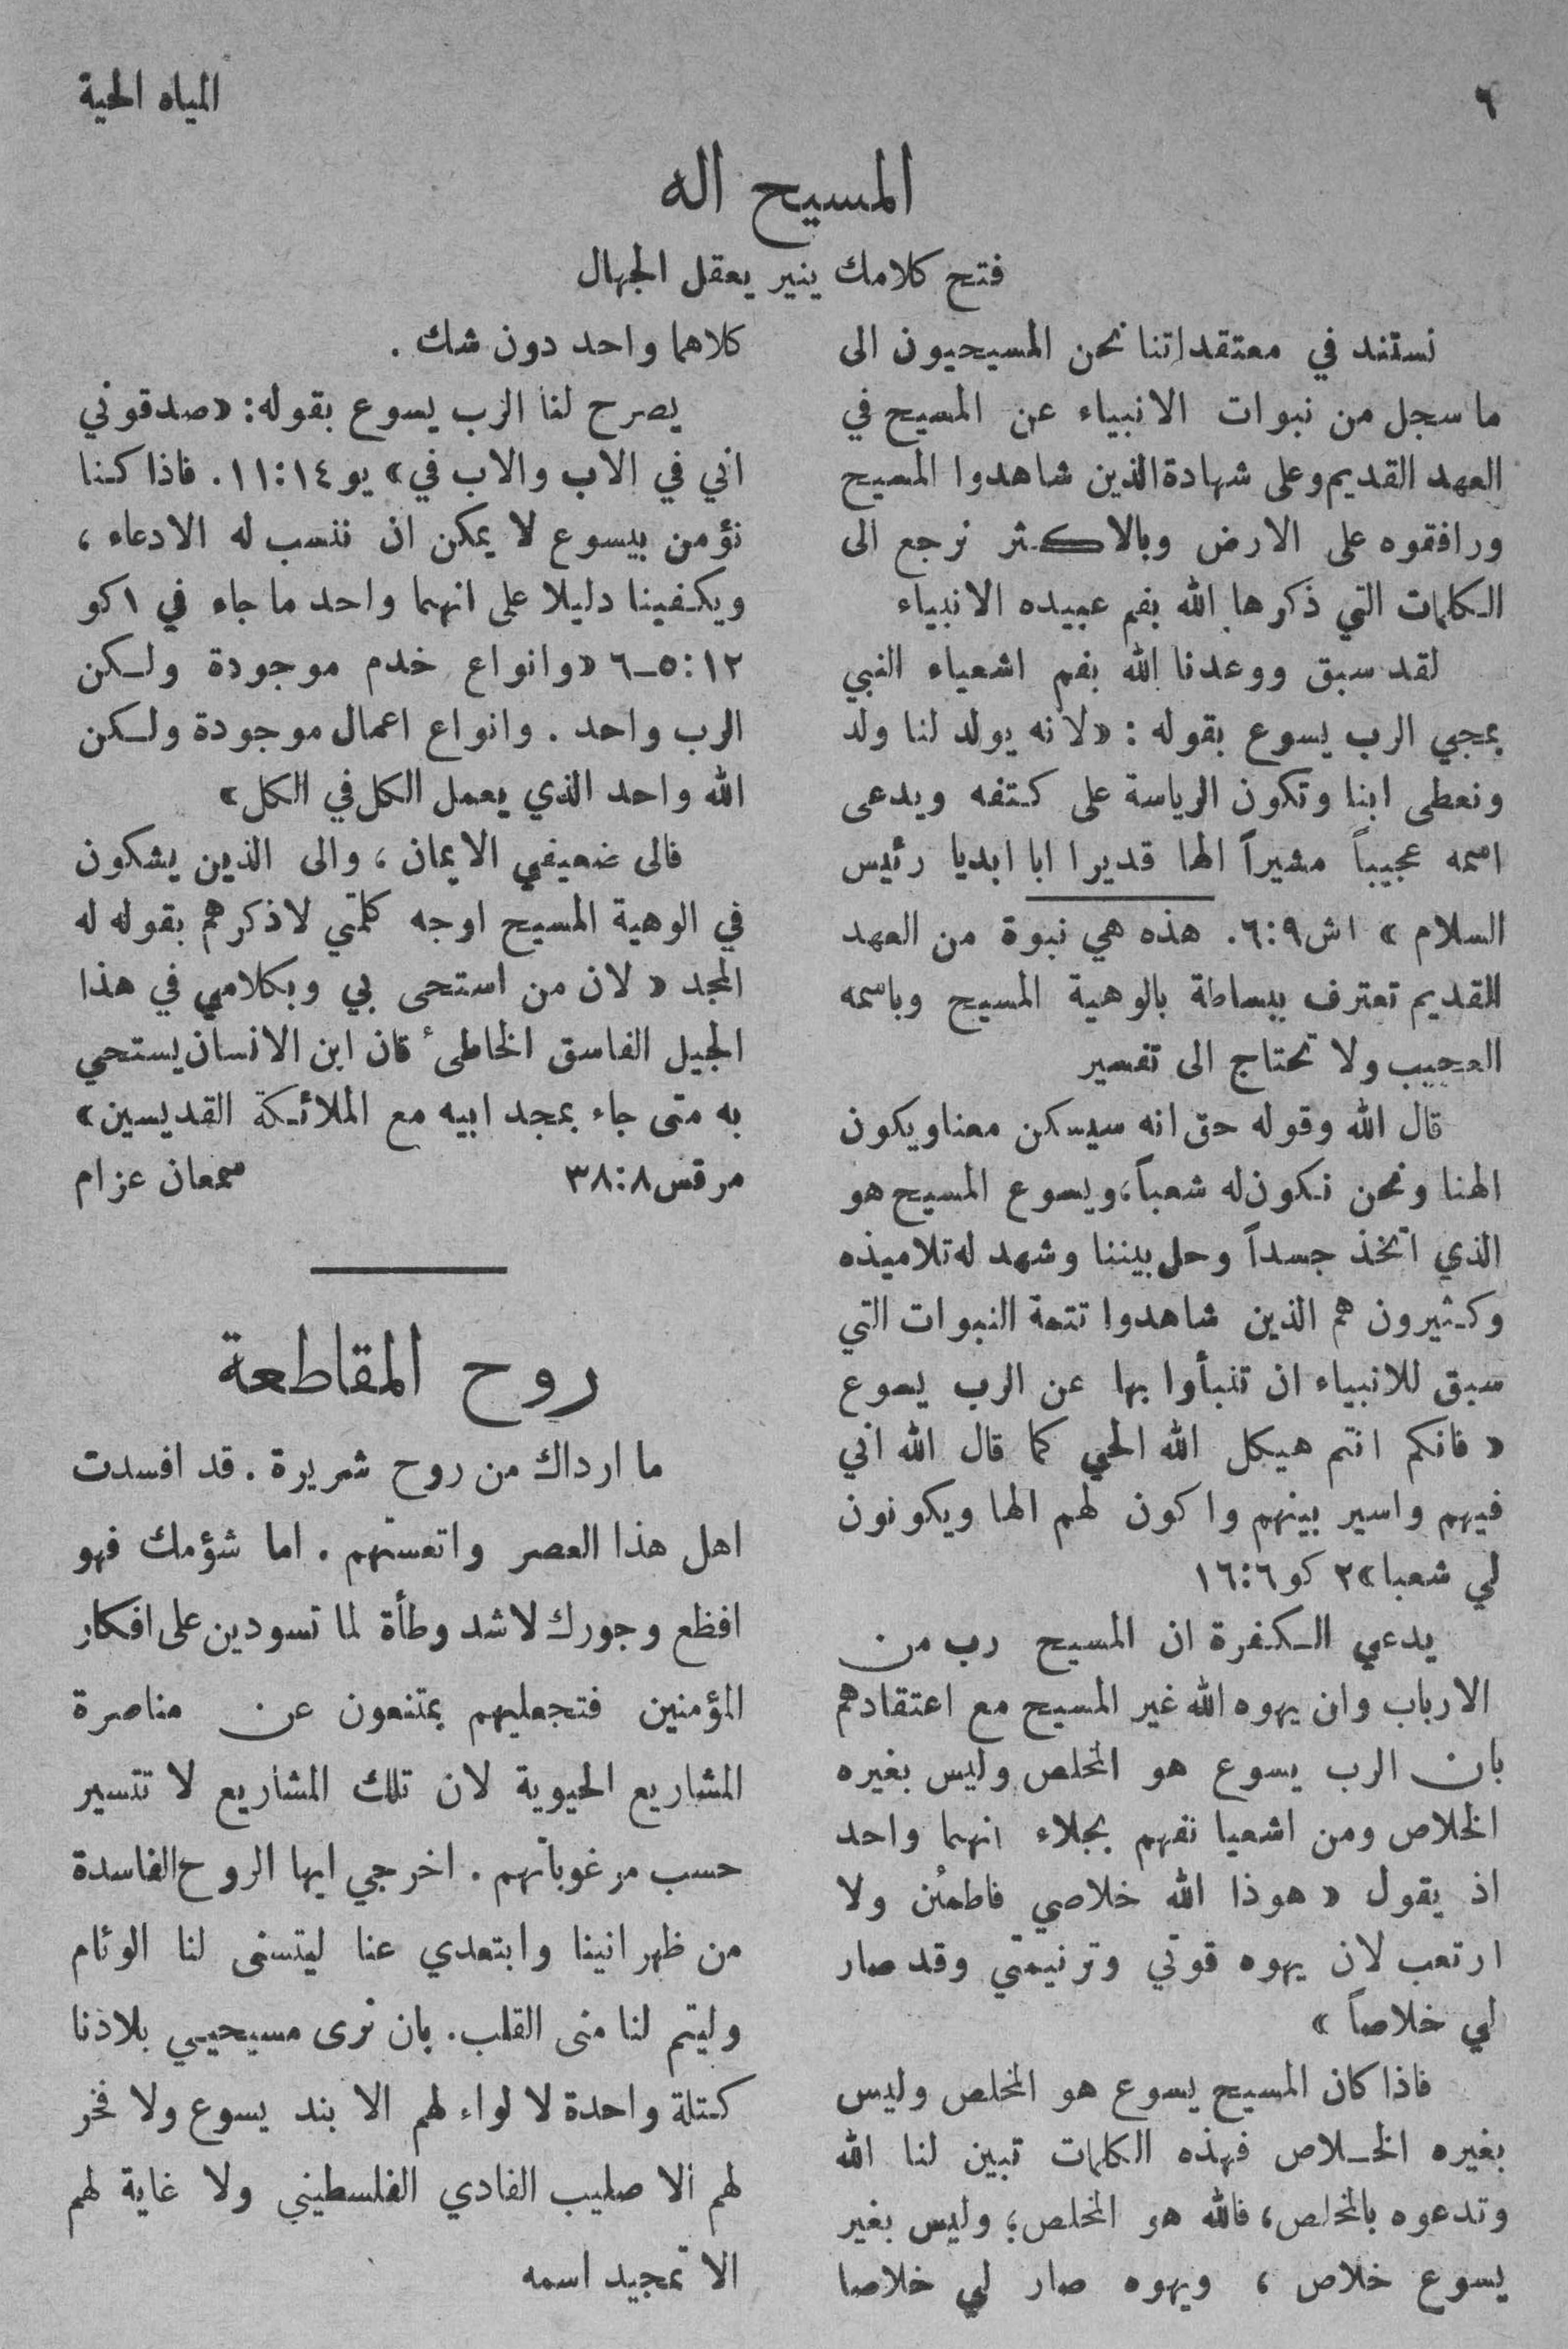 ٦
المياه الحية
المسيح اله
فتح كلامك ينير يعقل الجهال
نستند في معتقداتنا نحن المسيحيون الى
ما سجل من نبوات الانبياء عن المسيح في
العهد القديم وعلى شهادة الذين شاهدوا المسيح
ورافقوه على الارض وبالاكثر نرجع الى
الكلمات التي ذكرها الله بفم عبيده الانبياء
لقد سبق ووعدنا الله بفم اشعياء النبي
بمجي الرب يسوع بقوله : «لانه يولد لنا ولد
ونعطى ابنا وتكون الرياسة على كتفه ويدعى
اسمه عجيباً مشيراً الها قديرا ابا ابديا رئيس
السلام » اش٦:٩. هذه هي نبوة من العهد
القديم تعترف ببساطة بالوهية المسيح وباسمه
العجيب ولا تحتاج الى تفسير
قال الله وقوله حق انه سيسكن معنا ويكون
الهنا ونحن نكون له شعباً، ويسوع المسيح هو
الذي اتخذ جسداً وحل بيننا وشهد له تلاميذه
وكثيرون هم الذين شاهدوا تتمة النبوات التي
سبق للانبياء ان تنبأوا بها عن الرب يسوع
« فانكم انتم هيكل الله الحي كما قال الله اني
فيهم واسير بينهم واكون لهم الها ويكونون
لي شعبا» ٢ كو ١٦:٦
يدعي الكفرة ان المسيح رب من
الارباب وان يهوه الله غير المسيح مع اعتقادهم
بان الرب يسوع هو المخلص وليس بغيره
الخلاص ومن اشعيا نفهم بجلاء انهما واحد
اذ يقول « هوذا الله خلاصي فاطمئن ولا
ارتعب لان يهوه قوتي وترنيمتي وقد صار
لي خلاصاً »
فاذا كان المسيح يسوع هو المخلص وليس
بغيره الخلاص فهذه الكلمات تبين لنا الله
وتدعوه بالمخلص، فالله هو المخلص؛ وليس بغير
يسوع خلاص ، ويهوه صار لي خلاصا
كلاهما واحد دون شك .
يصرح لنا الرب يسوع بقوله: «صدقوني
اني في الاب والاب في» يو ١١:١٤. فاذا كنا
نؤمن بيسوع لا يمكن ان ننسب له الادعاء ،
ويكفينا دليلا على انهما واحد ما جاء في ١ كو
١٢:٥-٦ «وانواع خدم موجودة ولكن
الرب واحد . وانواع اعمال موجودة ولكن
الله واحد الذي يعمل الكل في الكل»
فالى ضعيفي الايمان ، والى الذين يشكون
في الوهية المسيح اوجه كلمتي لاذكرهم بقوله له
المجد « لان من استحى بي وبكلامي في هذا
الجيل الفاسق الخاطئ فان ابن الانسان يستحي
به متى جاء بمجد ابيه مع الملائكة القديسين»
مرقس ٣٨:٨ سمعان عزام
روح المقاطعة
ما ارداك من روح شريرة . قد افسدت
اهل هذا العصر واتعستهم . اما شؤمك فهو
افظع وجورك لاشد وطأة لما تسودين على افكار
المؤمنين فتجعليهم يمتنعون عن مناصرة
المشاريع الحيوية لان تلك المشاريع لا تتسير
حسب مرغوباتهم . اخرجي ايها الروح الفاسدة
من ظهرانينا وابتعدي عنا ليتسنى لنا الوئام
وليتم لنا منى القلب. بان نرى مسيحيي بلادنا
كتلة واحدة لا لواء لهم الا بند يسوع ولا فخر
لهم الا صليب الفادي الفلسطيني ولا غاية لهم
الا تمجيد اسمه